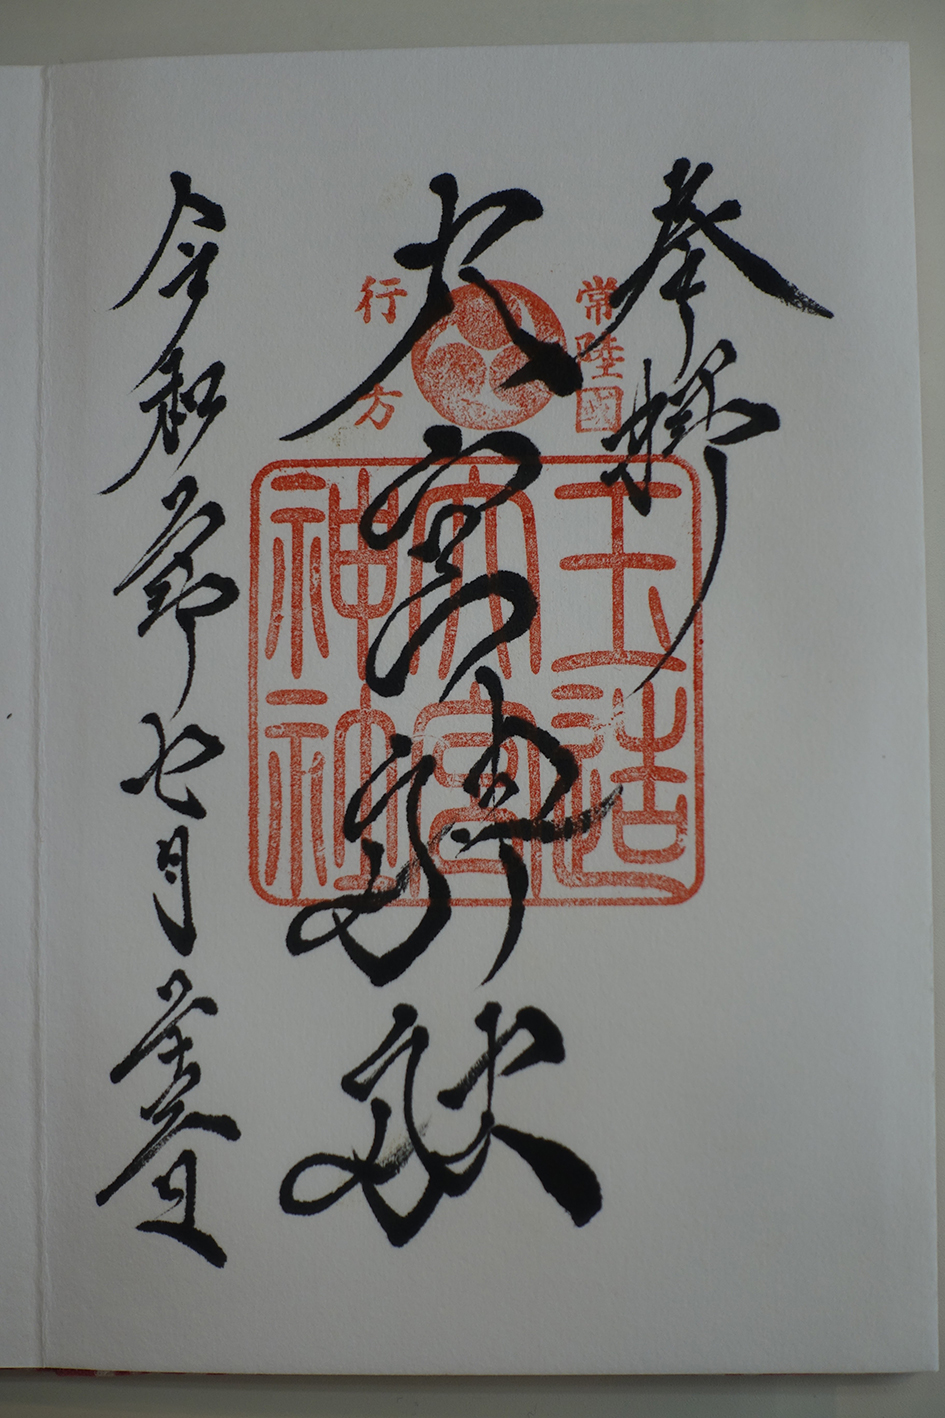 奉拝
常陸國
行方
玉造
大宮
神社
大宮神社
令和 年七月 日